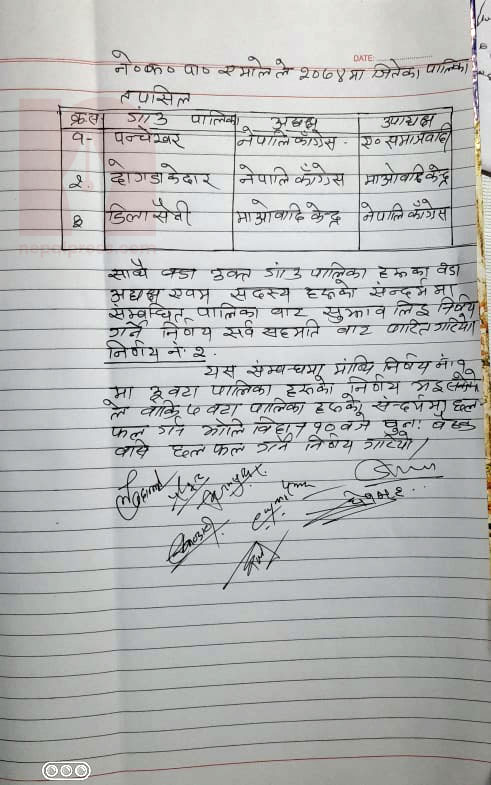 DATE:
ने०क० पा० एमाले ले २०७४ मा जितेका पालिका
तपसिल
क्र.स. गाउँ पालिका अध्यक्ष उपाध्यक्ष
१- पन्चेश्वर नेपालि काँग्रेस - ए० समाजवादी
२. दोगडाकेदार नेपालि काँग्रेस माओवादि केन्द्र
३ डिलासैनी माओवादि केन्द्र नेपालि काँग्रेस
साथै वडा उक्त गाउँपालिका हरुका वडा
अध्यक्ष एवम सदस्य हरुको सन्दर्भमा
सम्बन्धित पालिका बाट सुझाव लिइ निर्णय
गर्ने निर्णय सर्व सहमति बाट पारित गरियो
निर्णय नं. २.
यस सम्बन्धमा माथि निर्णय नं. १
मा ३ वटा पालिका हरुको निर्णय भइ
ले बाकि ७ वटा पालिका हरुको सन्दर्भमा छल
फल गर्न भोलि बिहान १० बजे पुनः बैठक
बसि छलफल गर्ने निर्णय गरियो।
nepalpress.com